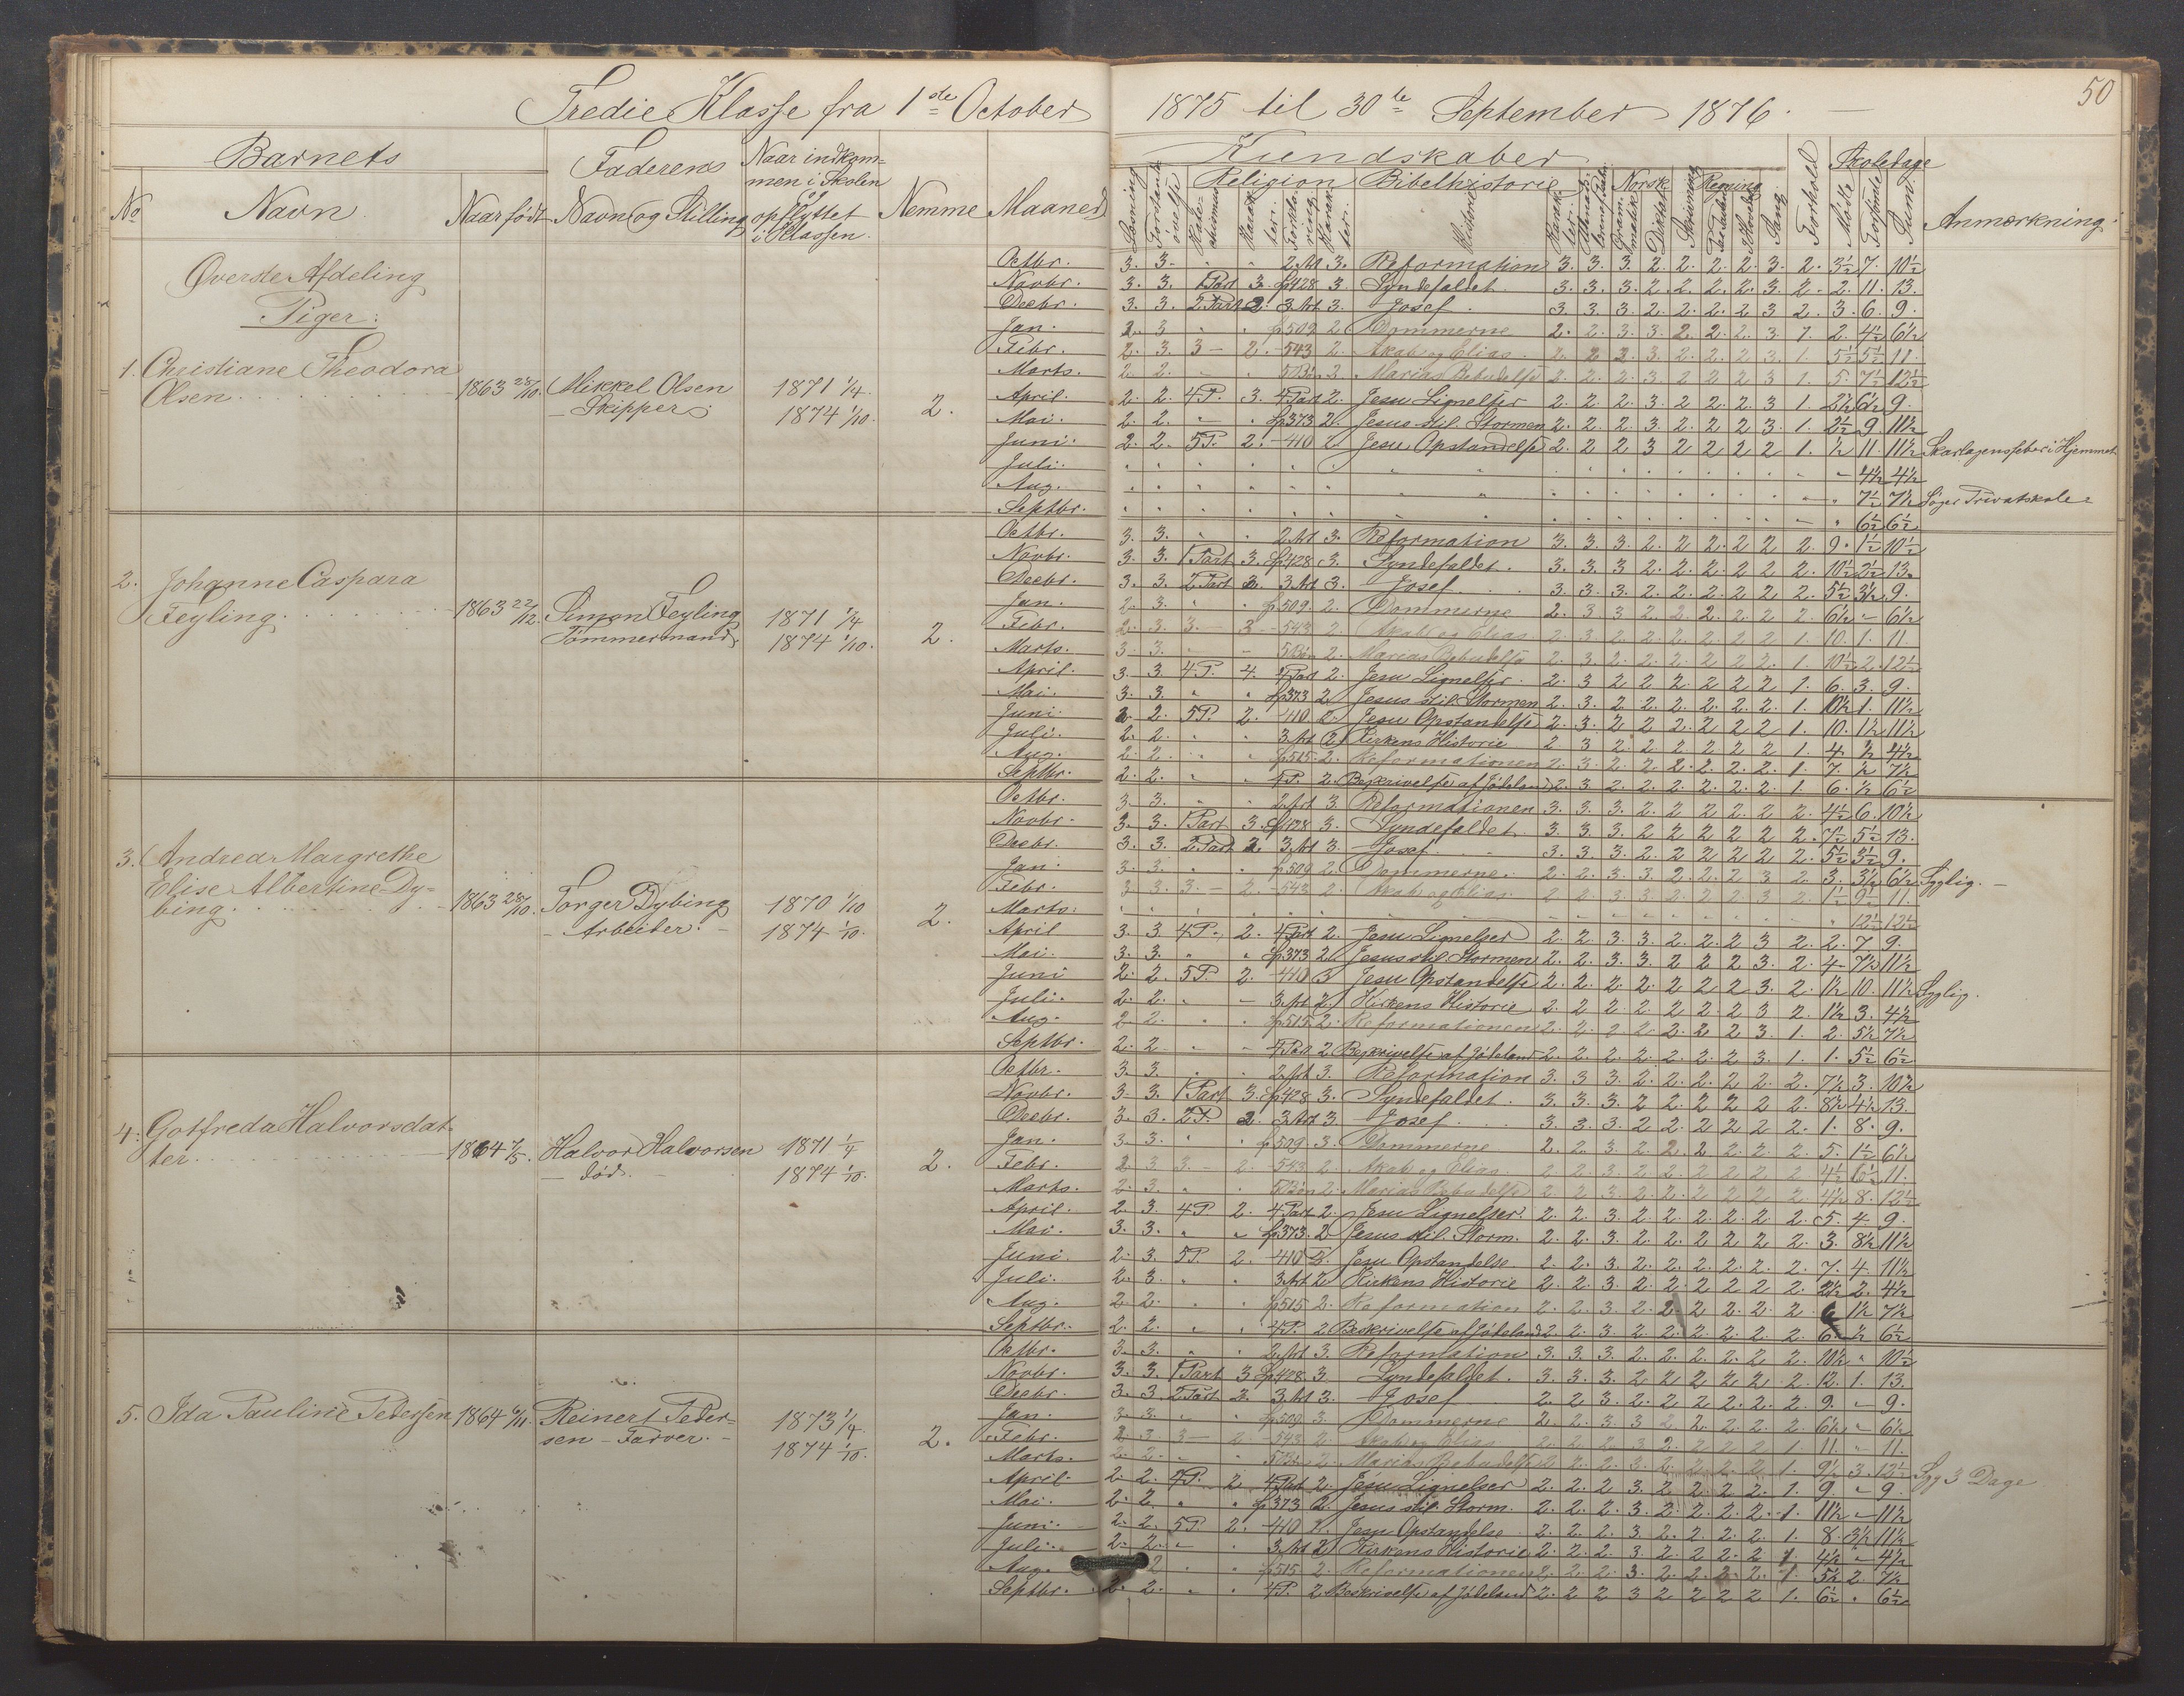 50
Tredie Klasse fra 1ste October 1875 til 30te September 1876.
Barnets
Faderens
Naar indkom=
men i Skolen
og
opflyttet
i Klassen.
No
Navn
Naar født
Navn og Stilling
Nemme
Maaned
Kundskaber
Religion
Bibelhistorie
Norsk
Regning
Skoledage
Læsning
Historie
Diktat
Skrivning
Sang
Forhold
Mødte
Forsømte
Sum
Anmærkning.
Øverste Afdeling
Piger:
1. Christiane Theodora
Olsen
1863 28/10.
Mikkel Olsen
- Skipper
1871 1/4.
1874 1/10.
2.
Octbr. 3. 3. 2. Art 3. Reformation 3. 3. 3. 2. 2. 2. 2. 3. 2. 3½ 7. 10½
Novbr. 3. 3. 1 Part 3. Sp 428 3. Syndefaldet. 3. 3. 3. 2. 2. 2. 2. 3. 2. 2. 11. 13.
Decbr. 3. 3. 2 Part 2. 3 Art 3. Josef. 3. 3. 3. 2. 2. 2. 2 3 2. 3. 6. 9.
Jan. 2. 3 Sp 509 2 Dommerne 2. 2. 3 3. 2. 2. 2. 3. 1. 2. 4½ 6½
Febr. 2. 3. 3 - 2. - 543 2. Akab og Elias. 2. 2 2. 3. 2. 2. 2 3. 1. 5½ 5½ 11.
Marts. 2. 2. 5 Bøn 2 Marias Bebudelse 2. 2. 2. 3. 2 2 2 3 1. 5. 7½ 12½
April. 2. 2. 4 P. 3. 4 Part 2. Jesu Lignelser 2. 2. 2. 3 2 2. 2. 3 1. 2½ 6½ 9.
Mai. 2. 2. Sp 373 2. Jesus stil. Stormen 2. 2. 2. 3. 2. 2 2 3. 1. 2½ 9. 11½
Juni. 2. 2. 5 P. 2. - 410 2 Jesu Opstandelse 2. 2 2 3 2 2 2 2 1. ½ 11. 11½ Skarlagensfeber i Hjemmet
Juli. 4½ 4½
Aug. 7½ 7½ Søger Privatskole
Septbr. 6½ 6½
2. Johanne Caspara
Feyling.
1863 22/12.
Simon Feyling
Tømmermand
1871 1/4
1874 1/10.
2.
Octbr. 3. 3. 2. Art 3. Reformation 3. 3. 3. 2. 2 2. 2 2 2. 9. 1½ 10½
Novbr. 3. 3. 1 Part 3. Sp 428 3. Syndefaldet. 3. 3. 3 2. 2. 2. 2 2 2. 10½ 2½ 13.
Decbr. 3. 3. 2 Part 3. 3 Art 3. Josef. 3. 3. 3. 2. 2. 2. 2 2 2. 5½ 3½ 9.
Jan. 2. 3. Sp 509. 2. Dommerne 2. 3 3 2. 2. 2. 2. 2 2. 6½ - 6½
Febr. 2. 3. 3. - 3 - 543 2. Akab og Elias. 2. 3. 2. 2. 2. 2 2 2 1. 10. 1. 11
Marts. 3. 3. 5 Bøn 2. Marias Bebudelse 2. 3. 2. 2. 2. 2 2 2. 1. 10½ 2. 12½
April. 3. 3. 4 P. 4. 4 Part 2. Jesu Lignelser. 2. 3 2 2 2. 2 2 2 1. 6. 3. 9.
Mai. 3. 3. Sp 373 2 Jesus stil. Stormen 2. 3. 2 2. 2. 2. 2. 2. 1. 10½ 1. 11½
Juni 2. 2. 5 P. 2. - 410 2. Jesu Opstandelse 2. 3. 2 2 2. 2 2 2 1. 10. 1½ 11½
Juli. 2. 2. 3. Art 2. Kirkens Historie 2 3 2. 2 2 2 2 2 1. 4. ½ 4½
Aug. 2. 2. Sp 515. 2. Reformationen 2. 3. 2. 2. 2. 2. 2. 2. 1. 7. ½ 7½
Septbr. 2. 2. 4 P. 2. Beskrivelse af Jødeland 2. 3 2. 2. 2. 2. 2. 2. 1. 6. ½ 6½
3. Andrea Margrethe
Elise Albertine Dy=
bing.
1863 28/10.
Torger Dybing
- Arbeider. -
1870 1/10
1874 1/10.
2.
Octbr. 3. 3. 2. Art 3. Reformationen 3. 3. 3. 2. 2 2 2 2 2. 4½ 6. 10½
Novbr. 3. 3. 1 Part 3. Sp 428 3. Syndefaldet 3. 3 3. 2 2 2 2 2 2. 7½ 5½ 13.
Decbr. 3. 3. 2 Part 2. 3 Art 3. Josef. 3. 3. 3. 2. 2. 2 2 2 2. 5½ 3½ 9.
Jan. 3. 3. Sp 509 2 Dommerne. 2. 2. 3 3 2. 2. 2 3 2. 3. 3½ 6½ Syglig.
Febr. 3 3. 3. - 2. - 543 2. Akab og Elias. 2 2. 3. 3. 2. 2 2. 3 2. 1½ 9½ 11.
Marts. 12½ 12½
April 3. 3. 4 P. 2. 4 Part 2. Jesu Lignelser 2. 2. 3 3. 2. 2. 2 3 2. 2. 7 9.
Mai. 3. 3. Sp 373 2 Jesus stil. Stormen 2. 2. 3. 3. 2 2 2 3. 2. 4 7½ 11½
Juni 2. 2. 5 P. 2. - 410 3 Jesu Opstandelse 2. 2. 2. 2. 2 2 2 3. 2. 1½ 10. 11½ Syglig.
Juli. 2. 2. 3. Art 2. Kirkens Historie 2. 2 2. 2. 2 2. 2 3 2. 1½ 3. 4½
Aug. 2 2. Sp 515 2. Reformationen 2. 2. 2 2. 2. 2 2 3 1. 2. 5½ 7½
Septbr. 2. 2 4 Part 2 Beskrivelse af Jødeland 2. 2. 2. 2. 2. 2. 2 3. 1. 1. 5½ 6½
4. Gotfreda Halvorsdat=
ter
1864 7/5.
Halvor Halvorsen
- død. -
1871 1/4
1874 1/10.
2.
Octbr. 3. 3. 2. Art 3. Reformation 3. 3 3. 2. 2. 2. 2 2. 2. 7½ 3. 10½
Novbr. 3. 3. 1 Part 3. Sp 428. 3. Syndefaldet. 3. 3. 3. 2 2. 2 2 2 2. 8½ 4½ 13.
Decbr. 3. 3. 2 P. 2. 3 Art 3 Josef 3. 3. 3. 2 2. 2 2 2 2. 1. 8. 9.
Jan. 3. 3. Sp 509. 3. Dommerne 2. 2. 3. 2. 2. 2 2. 2. 2. 5. 1½ 6½
Febr. 2 3 3. - 2. - 543 2. Akab og Elias. 2 2. 3 2 2. 2 2 2 2 4½ 6½ 11.
Marts. 2. 3. 5 Bøn 2. Marias Bebudelse 2 2 3. 2. 2. 2 2 2 2. 4½ 8. 12½
April. 2. 3. 4 P. 2. 4 Part 2. Jesu Lignelser. 2. 2. 3. 2. 2. 2. 2. 2 2. 5. 4. 9.
Mai. 3. 3. Sp 373. 2 Jesus stil. Storm. 2. 2. 3. 2. 2. 2 2 2 2. 3. 8½ 11½
Juni. 2. 3. 5 P. 2. - 410 2. Jesu Opstandelse. 2. 2. 3. 2. 2. 2. 2. 2. 2. 7. 4. 11½
Juli. 2. 3. 3. Art 2 Kirkens Historie 2. 2. 3 2. 2. 2 2 2 2. 2½ 2. 4½
Aug. 2. 2. Sp 515 2. Reformation 2. 2. 3. 2. 2. 2 2. 2. 2 6 1½ 7½
Septbr. 2. 2. 4 P. 2 Beskrivelse af Jødeland 2. 2. 3. 2. 2. 2. 2. 2. 2. 6. ½ 6½
5. Ida Pauline Pedersen
1864 6/11.
Reinert Peder=
sen - Farver. -
1873 1/4.
1874 1/10.
2.
Octbr. 3. 3. 2. Art 3. Reformation 3. 3. 3. 2. 2. 2. 2. 2 2. 10½ 10½
Novbr. 3. 3. 1 Part 3 Sp 428. 3 Syndefaldet. 3. 3. 3. 2 2 2 2 2. 2. 12. 1. 13.
Decbr. 3. 3. 2 Part 2. 3. Art 3. Josef 2. 2. 3 2. 2. 2. 2. 2. 2. 9. - 9.
Jan. 3. 3. Sp 509 3. Dommerne 2. 2. 3 3 2 2. 2. 2. 2. 6½ - 6½
Febr. 2 3 3 - 2. - 543 2. Akab og Elias. 2. 2. 2 3 2. 2 2 2 1. 11. 11.
Marts. 2. 2. 5 Bøn 2. Marias Bebudelse 2. 2. 2. 3. 2. 2. 2. 2 1. 9½ 3. 12½ Syg 3 Dage
April. 2. 2. 4 P. 2 4 Part 2. Jesu Lignelser 2. 2. 2 3 2. 2 2 2. 1. 9. 9.
Mai. 2. 2. Sp 373 2. Jesus stil. Storm. 2. 2. 2. 3. 2. 2. 2. 2. 1. 11½ - 11½
Juni. 2. 2. 5 P. 2. - 410 2. Jesu Opstandelse 2. 2. 2. 3. 2. 2. 2. 2. 1. 8. 3½ 11½
Juli. 2. 2. 3. Art 2. Kirkens Historie 2. 2. 2. 3. 2. 2 2. 2 1. 4½ 4½
Aug. 2 Sp 515 2. Reformationen 2. 2. 2. 3. 2. 2. 2. 2. 1. 5½ 2. 7½
Septbr. 2. 2. 4 P. 2 Beskrivelse af Jødeland 2. 2 2 3 2 2 2 2 1. 6½ 6½